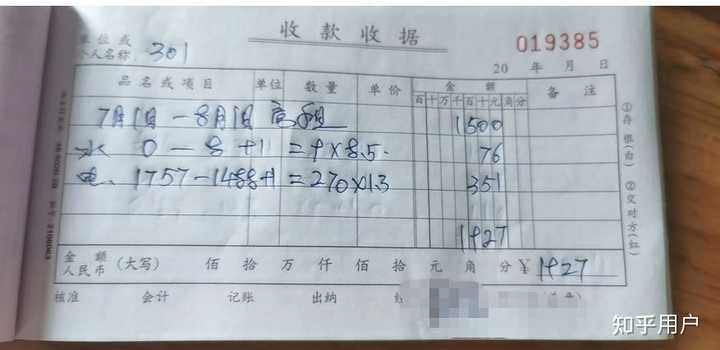 收款收据
单位或
个人名称 301
019385
20 年 月 日
品名或项目 单位 数量 单价 金额 备注
百十万千百十元角分
7月1日-8月1日 房租 1500
水 0-8+1=9×8.5. 76
电. 1757-1488+1=270×1.3 351
1927
金额
人民币 (大写) 佰 拾 万 仟 佰 拾 元 角 分 ¥ 1927
核准 会计 记账 出纳
①存根(白) ②交对方(红)
知乎用户